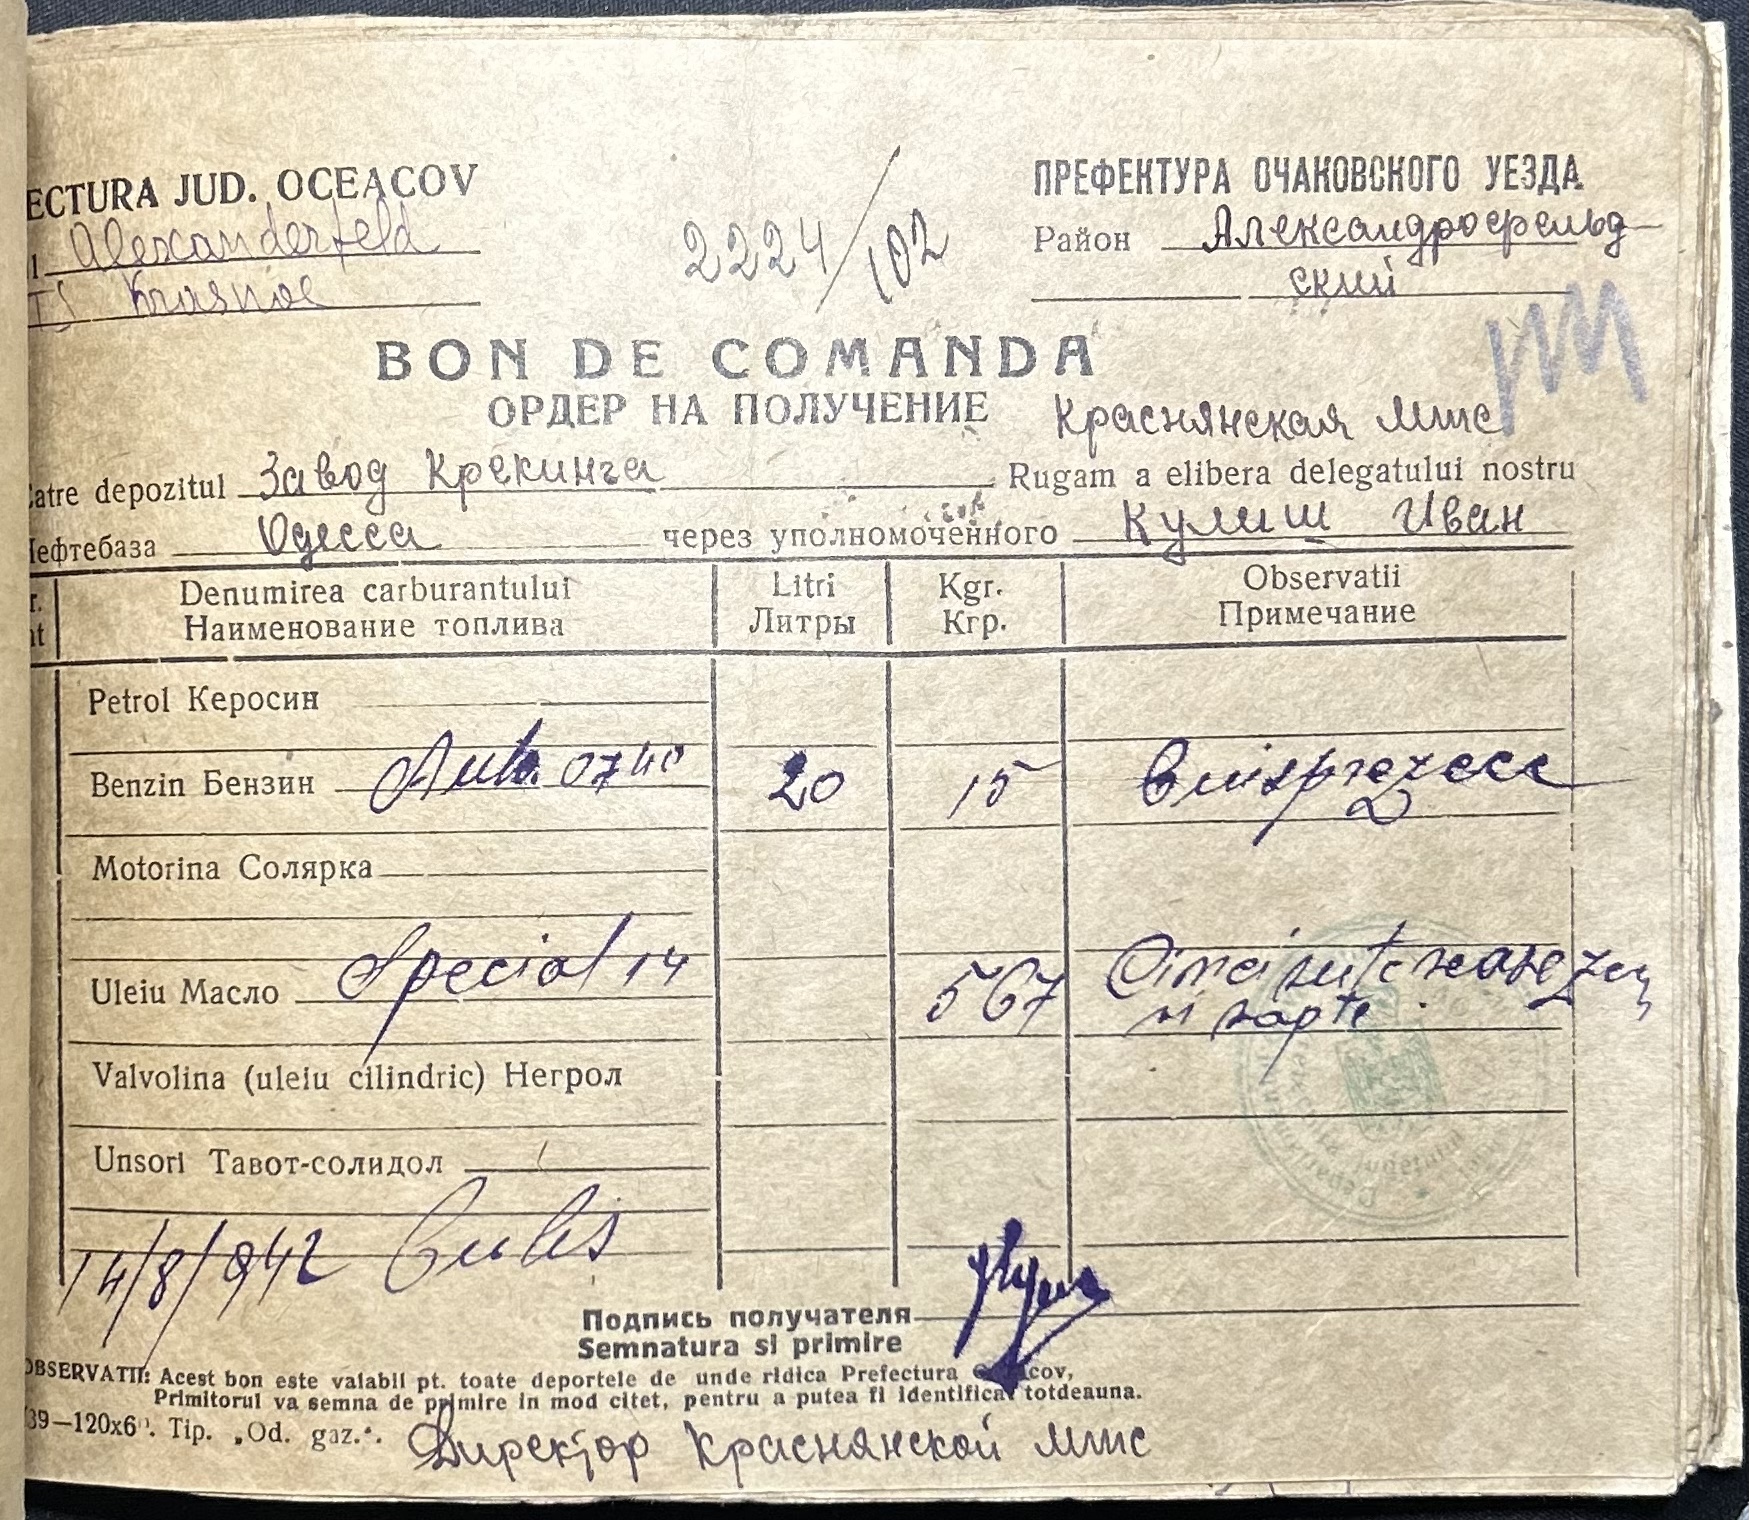 ECTURA JUD. OCEACOV
ПРЕФЕКТУРА ОЧАКОВСКОГО УЕЗДА
Alexanderfeld
2224/102
Район Александрофельд-
ский
Krasnoe
BON DE COMANDA
ОРДЕР НА ПОЛУЧЕНИЕ
Краснянская мтс
Catre depozitul Завод Крекинга Rugam a elibera delegatului nostru
Нефтебаза Одесса через уполномоченного Кулиш Иван
Denumirea carburantului Litri Kgr. Observatii
Наименование топлива Литры Кгр. Примечание
Petrol Керосин
Benzin Бензин Auto 0740 20 15 Cinisprezece
Motorina Солярка
Uleiu Масло Special 14 567 Cinci sute
si sapte
Valvolina (uleiu cilindric) Негрол
Unsori Тавот-солидол
14/8/942
Подпись получателя
Semnatura si primire
OBSERVATII: Acest bon este valabil pt. toate deportele de unde ridica Prefectura
Primitorul va semna de primire in mod citet, pentru a putea fi identificat totdeauna.
39—120x6 . Tip. „Od. gaz.".
Директор Краснянской мтс